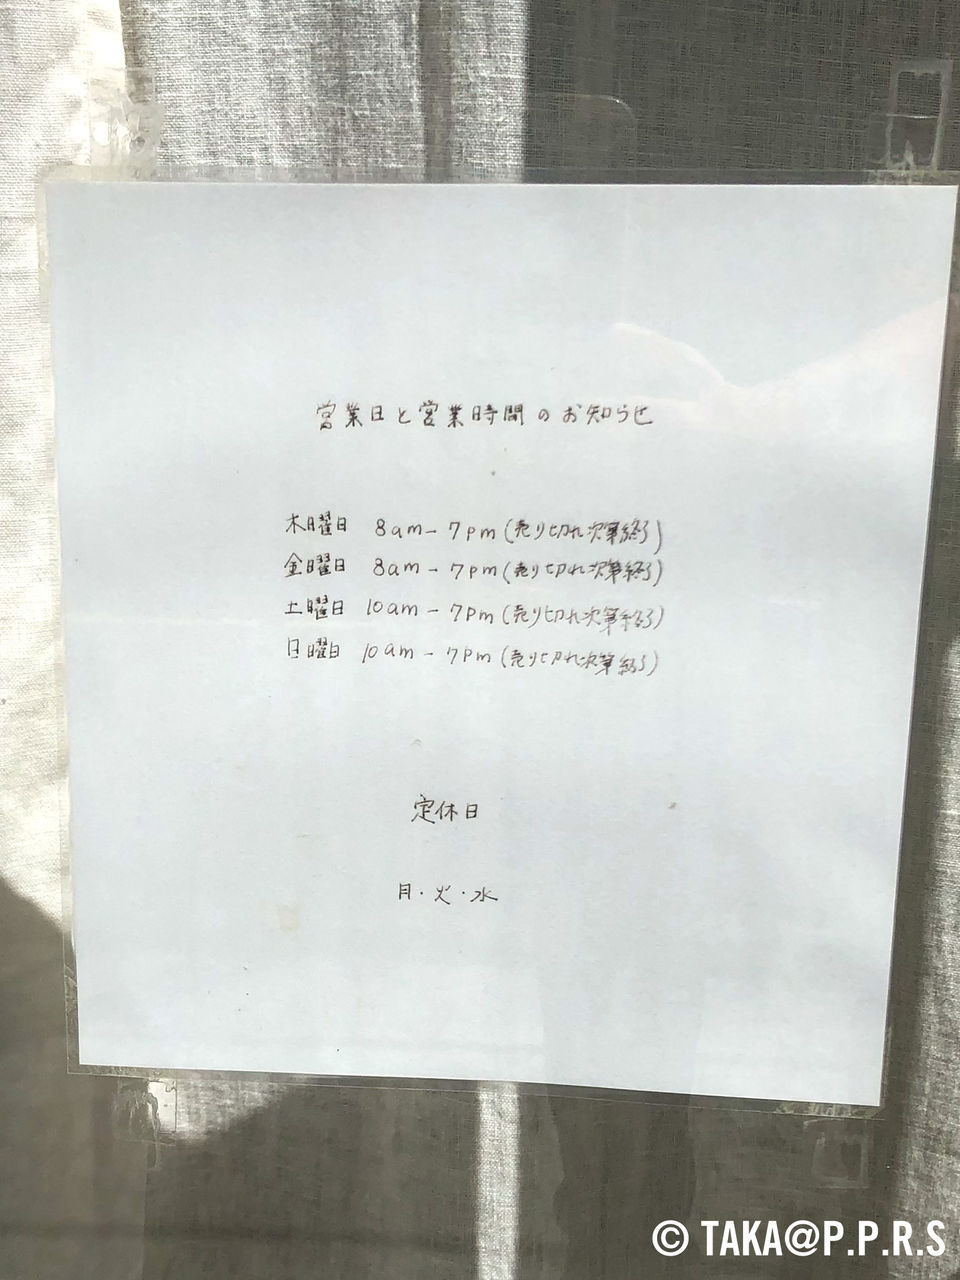 営業日と営業時間のお知らせ
木曜日 8am - 7pm (売り切れ次第終了)
金曜日 8am - 7pm (売り切れ次第終了)
土曜日 10am - 7pm (売り切れ次第終了)
日曜日 10am - 7pm (売り切れ次第終了)
定休日
月・火・水
© TAKA@P.P.R.S